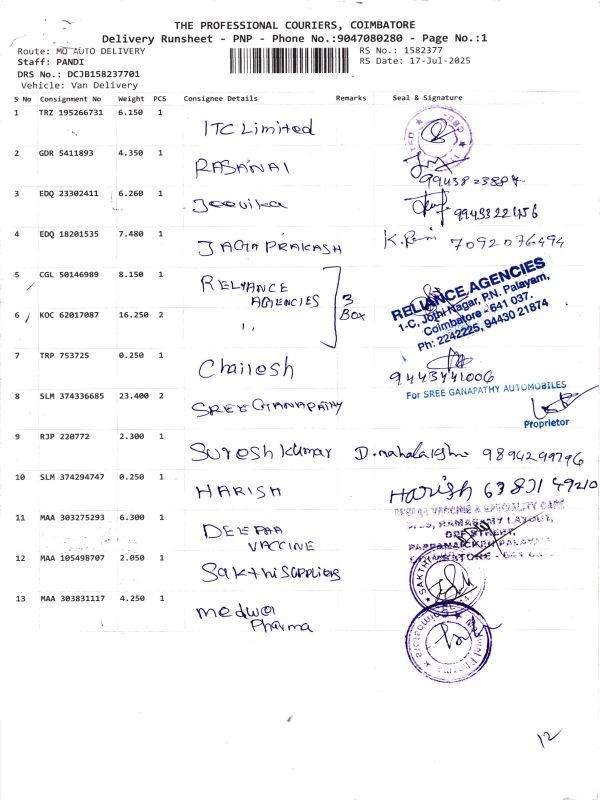 THE PROFESSIONAL COURIERS, COIMBATORE
Delivery Runsheet - PNP - Phone No.:9047080280 - Page No.:1
Route: MO AUTO DELIVERY
RS No.: 1582377
Staff: PANDI
RS Date: 17-Jul-2025
DRS No.: DCJB158237701
Vehicle: Van Delivery
S No Consignment No Weight PCS Consignee Details Remarks Seal & Signature
1 TRZ 195266731 6.150 1 ITC Limited
2 GDR 5411893 4.350 1 RASANAI
3 EDQ 23302411 6.260 1 Jeevika
4 EDQ 18201535 7.480 1 JAGAPRAKASH 7092076494
5 CGL 50146989 8.150 1 RELIANCE AGENCIES 3 BOX
RELIANCE AGENCIES
1-C, Jothi Nagar, P.N. Palayam,
Coimbatore - 641 037.
Ph: 2242225, 94430 21874
6 KOC 62017087 16.250 2 "
7 TRP 753725 0.250 1 Chailesh 9443441006
8 SLM 374336685 23.400 2 SREE GANAPATHY
For SREE GANAPATHY AUTOMOBILES
Proprietor
9 RJP 220772 2.300 1 Suresh kumar 9894299796
10 SLM 374294747 0.250 1 HARISH Harish 63801 49210
11 MAA 303275293 6.300 1 DEEPAA VACCINE
VACCINE & SPECIALITY CARE
RAMASAMY LAYOUT,
PAPPANAICKEN PALAYAM
12 MAA 105498707 2.050 1 Sakthi SUPPliers
SAKTHI
13 MAA 303831117 4.250 1 medwa Pharma
12